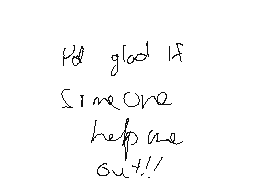 I'd glad if
someone
help me
out!!!